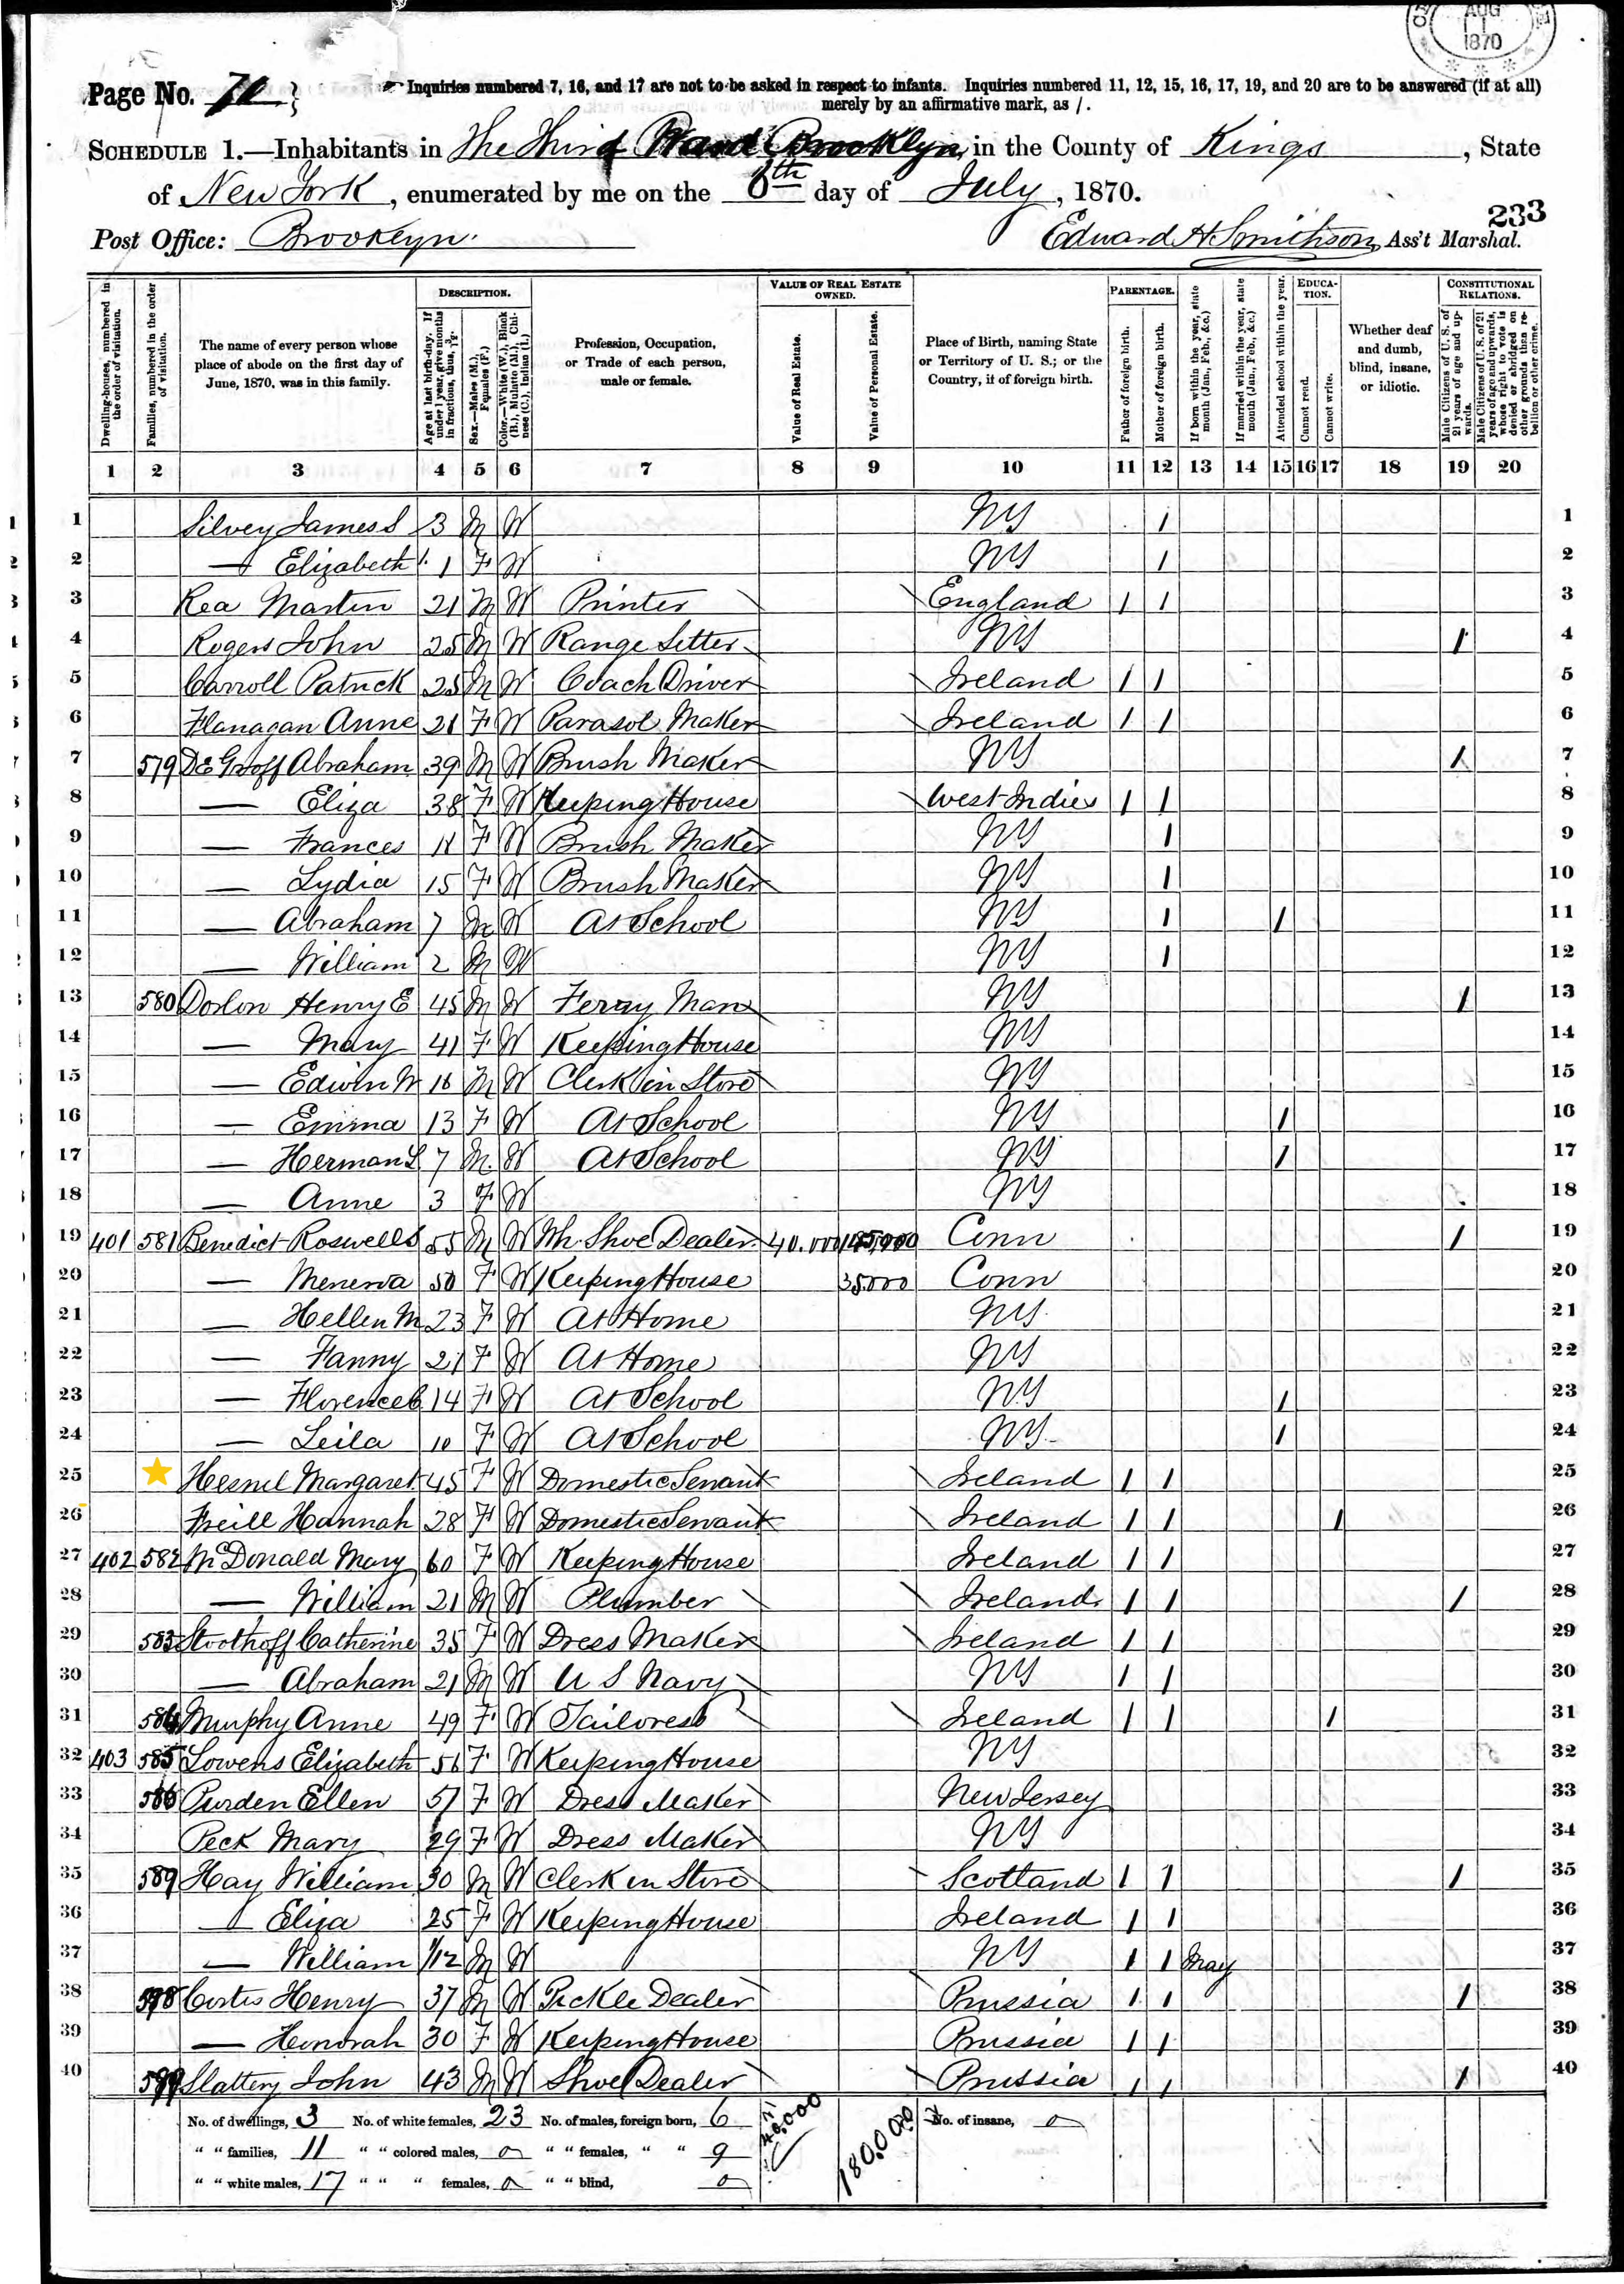 AUG
1
1870
Page No. 71
Inquiries numbered 7, 16, and 17 are not to be asked in respect to infants. Inquiries numbered 11, 12, 15, 16, 17, 19, and 20 are to be answered (if at all)
merely by an affirmative mark, as /.
SCHEDULE 1.—Inhabitants in The Third Ward Brooklyn, in the County of Kings, State
of New York, enumerated by me on the 6th day of July, 1870.
233
Post Office: Brooklyn. Edward H. Smithson, Ass't Marshal.
Dwelling-houses, numbered in the order of visitation.
Families, numbered in the order of visitation.
The name of every person whose place of abode on the first day of June, 1870, was in this family.
DESCRIPTION.
Age at last birth-day. If under 1 year, give months in fractions, thus, 3/12.
Sex.—Males (M.), Females (F.)
Color.—White (W.), Black (B.), Mulatto (M.), Chinese (C.), Indian (I.)
Profession, Occupation, or Trade of each person, male or female.
VALUE OF REAL ESTATE OWNED.
Value of Real Estate.
Value of Personal Estate.
Place of Birth, naming State or Territory of U. S.; or the Country, if of foreign birth.
PARENTAGE.
Father of foreign birth.
Mother of foreign birth.
If born within the year, state month (Jan., Feb., &c.)
If married within the year, state month (Jan., Feb., &c.)
Attended school within the year.
EDUCATION.
Cannot read.
Cannot write.
Whether deaf and dumb, blind, insane, or idiotic.
CONSTITUTIONAL RELATIONS.
Male Citizens of U. S. of 21 years of age and upwards.
Male Citizens of U. S. of 21 years of age and upwards, whose right to vote is denied or abridged on other grounds than rebellion or other crime.
1 2 3 4 5 6 7 8 9 10 11 12 13 14 15 16 17 18 19 20
1 Silvey James S 3 M W NY 1 1
2 — Elizabeth 1 F W NY 1 2
3 Rea Martin 21 M W Printer England 1 1 3
4 Rogers John 25 M W Range Setter NY 1 4
5 Carroll Patrick 25 M W Coach Driver Ireland 1 1 5
6 Flanagan Anne 21 F W Parasol Maker Ireland 1 1 6
7 579 DeGroff Abraham 39 M W Brush Maker NY 1 7
8 — Eliza 38 F W Keeping House West Indies 1 1 8
9 — Frances F W Brush Maker NY 1 9
10 — Lydia 15 F W Brush Maker NY 1 10
11 — Abraham 7 M W At School NY 1 1 11
12 — William 2 M W NY 1 12
13 580 Dorlon Henry E 45 M W Ferry Man NY 1 13
14 — Mary 41 F W Keeping House NY 14
15 — Edwin W M W Clerk in Store NY 15
16 — Emma 13 F W At School NY 1 16
17 — Herman L 7 M W At School NY 1 17
18 — Anne 3 F W NY 18
19 401 581 Benedict Roswell S 55 M W Wh. Shoe Dealer 40.000 145,000 Conn 1 19
20 — Menerva 50 F W Keeping House 35000 Conn 20
21 — Hellen M 23 F W At Home NY 21
22 — Fanny 21 F W At Home NY 22
23 — Florence C 14 F W At School NY 1 23
24 — Leila 10 F W At School NY 1 24
25 Margaret 45 F W Domestic Servant Ireland 1 1 25
26 Hannah 28 F W Domestic Servant Ireland 1 1 1 26
27 402 582 McDonald Mary 60 F W Keeping House Ireland 1 1 27
28 — William 21 M W Plumber Ireland 1 1 1 28
29 583 Stoothoff Catherine 35 F W Dress Maker Ireland 1 1 29
30 — Abraham 21 M W U S Navy NY 1 1 30
31 584 Murphy Anne 49 F W Tailoress Ireland 1 1 1 31
32 403 585 Lowens Elizabeth 56 F W Keeping House NY 32
33 586 Purden Ellen 51 F W Dress Maker New Jersey 33
34 Peck Mary 29 F W Dress Maker NY 34
35 589 Hay William 30 M W Clerk in Store Scotland 1 1 1 35
36 — Eliza 25 F W Keeping House Ireland 1 1 36
37 — William 1/12 M W NY 1 1 May 37
38 Henry 37 M W Pickle Dealer Prussia 1 1 1 38
39 — Honorah 30 F W Keeping House Prussia 1 1 39
40 Slattery John 43 M W Shoe Dealer Prussia 1 1 1 40
No. of dwellings, 3 No. of white females, 23 No. of males, foreign born, 6 40,000 180,000 No. of insane, 0
" " families, 11 " " colored males, 0 " " females, " " 9
" " white males, 17 " " " females, 0 " " blind, 0